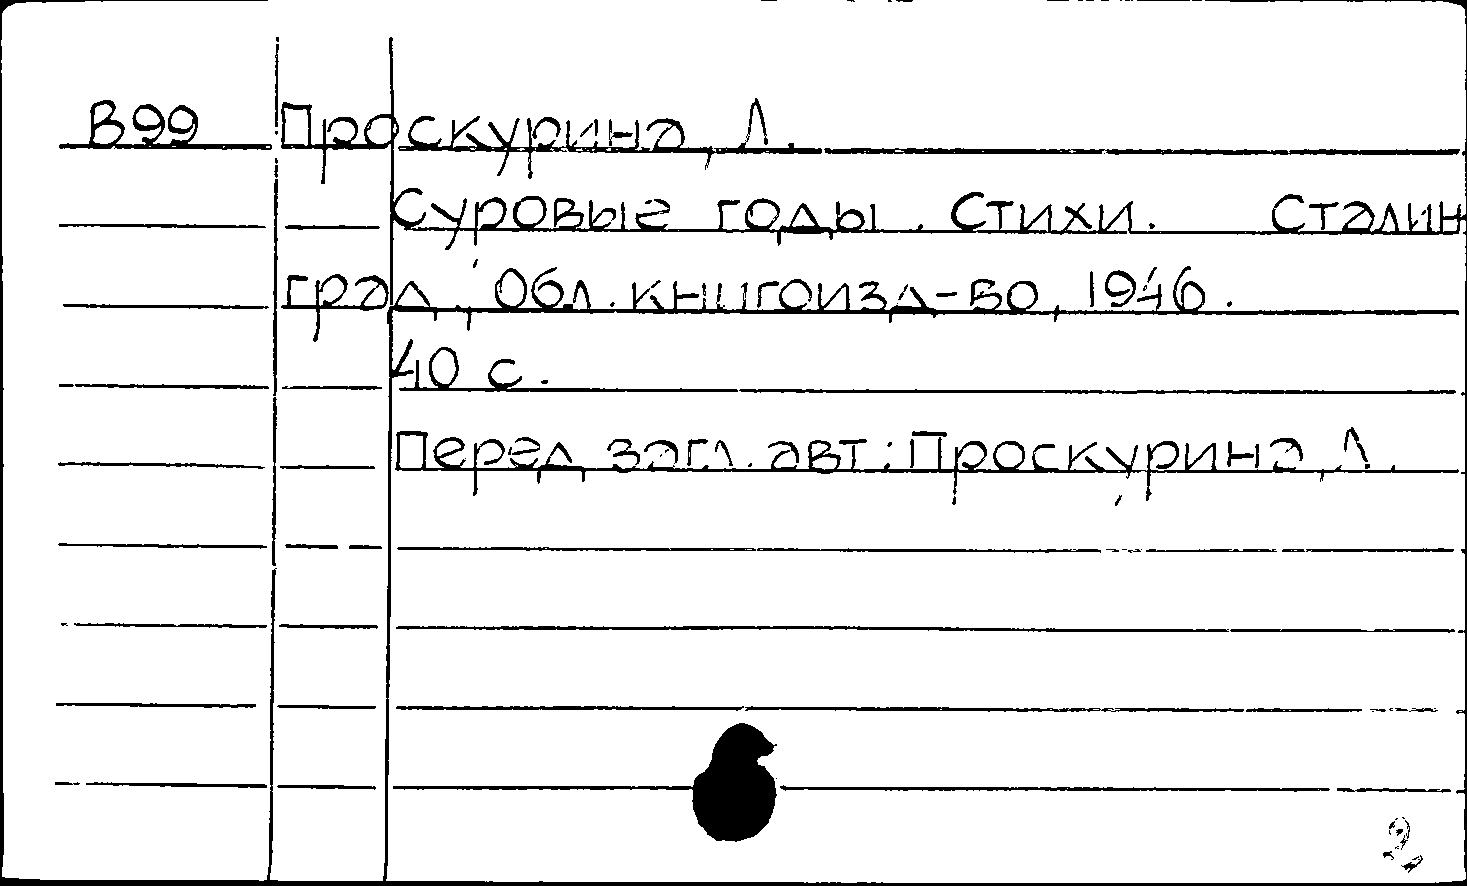 В99 Проскурина, Л.
Суровые годы. Стихи. Сталин
град, Обл. книгоизд-во, 1946.
40 с.
Перед загл. авт.: Проскурина, Л.
2